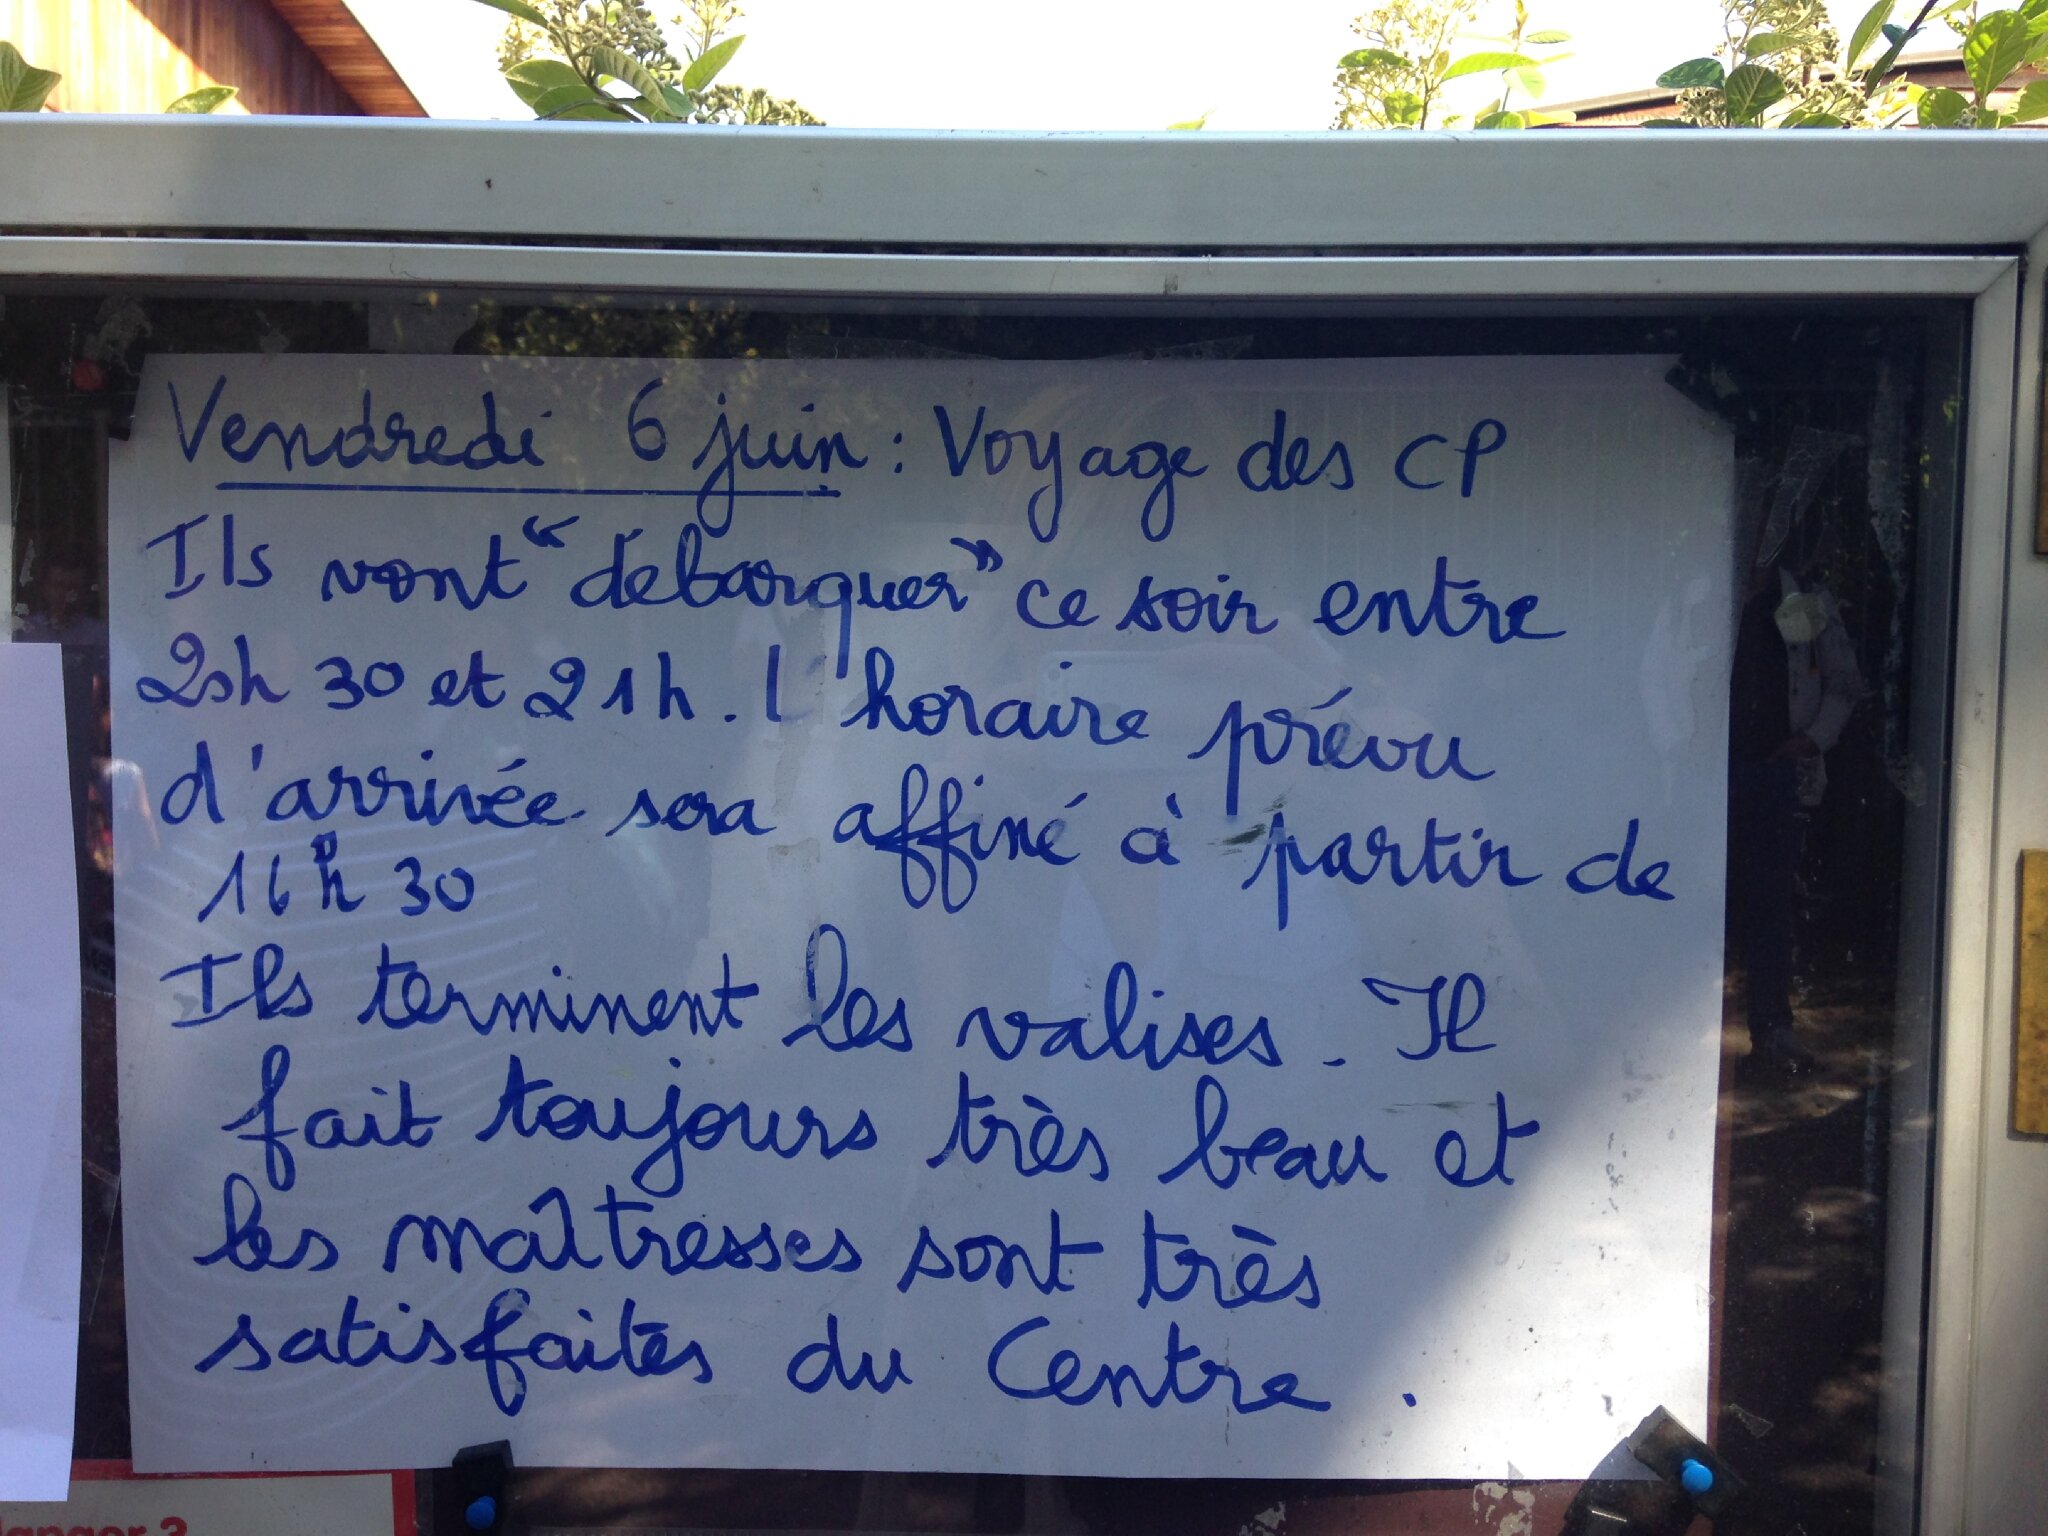 Vendredi 6 juin : Voyage des CP
Ils vont "débarquer" ce soir entre
20h 30 et 21h. l'horaire prévu
d'arrivée sera affiné à partir de
16h30
Ils terminent les valises. Il
fait toujours très beau et
les maîtresses sont très
satisfaites du Centre.